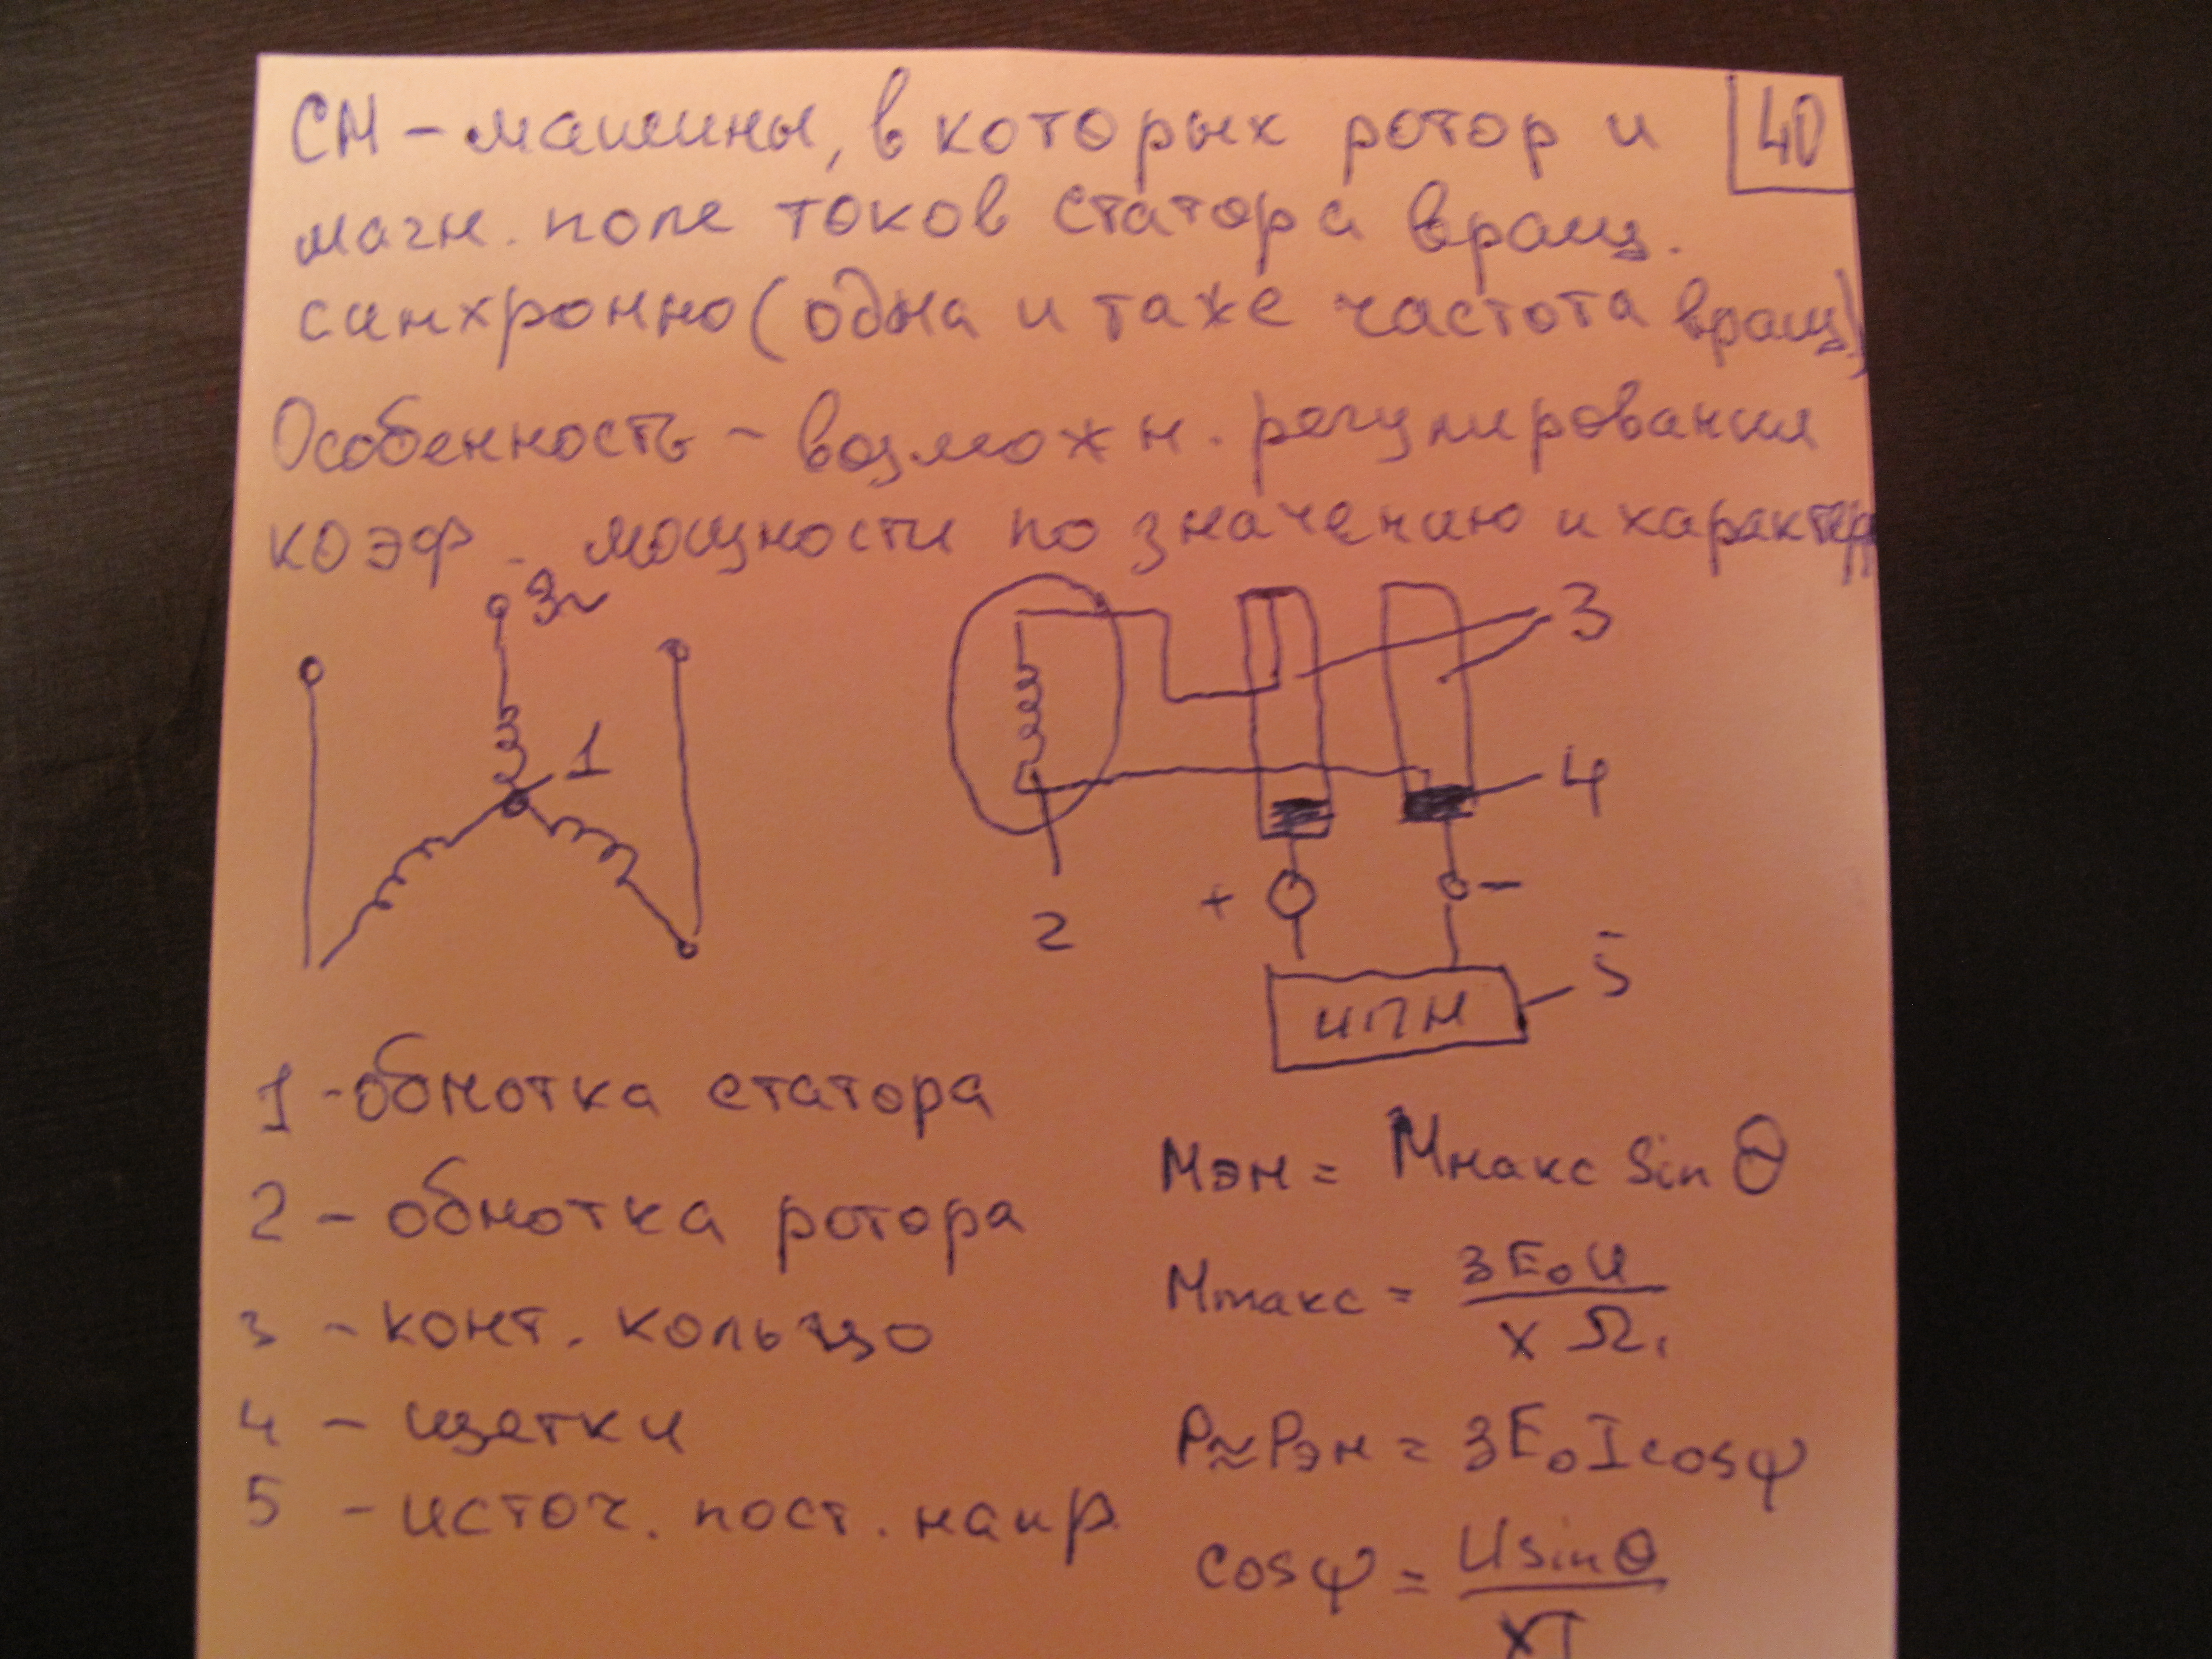 СМ – машины, в которых ротор и
40
магн. поле токов статора вращ.
синхронно (одна и таже частота вращ)
Особенность – возможн. регулирования
коэф. мощности по значению и характер
3~
1
2
3
4
+
–
5
ИПН
1 - обмотка статора
2 – обмотка ротора
3 – конт. кольцо
4 – щетки
5 – источ. пост. напр.
Mэм = Mмакс sin θ
Mmакс = 3E₀U / XΩ₁
P≈Pэм = 3E₀I cosψ
cosψ = U sinθ / XI